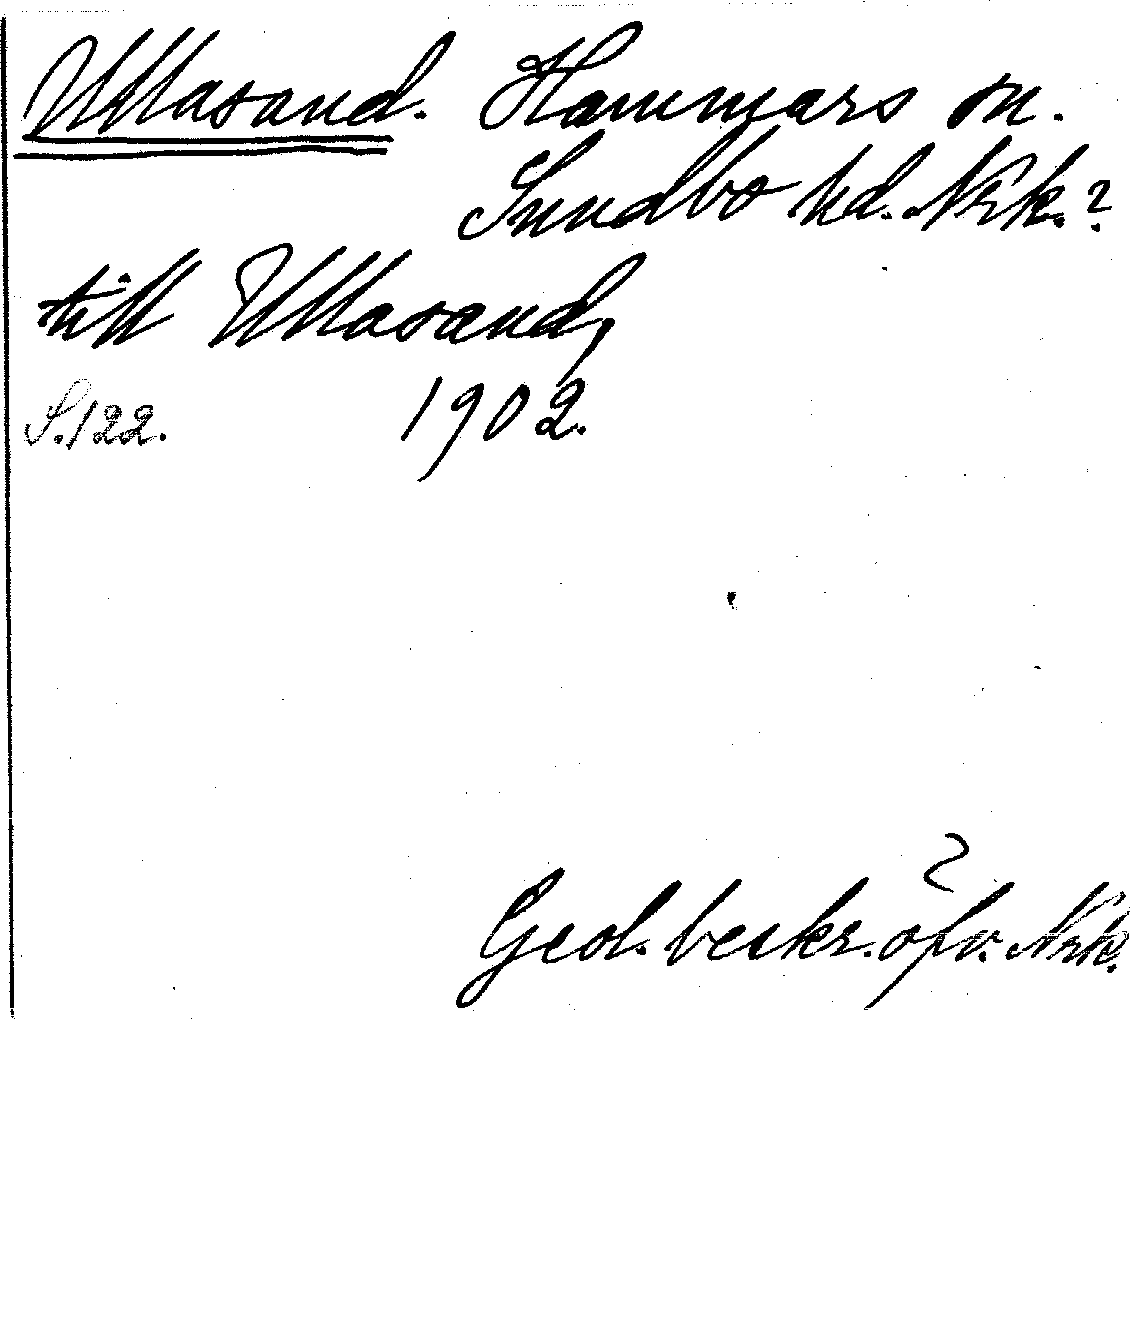 Ullasand. Hammars sn.
Sundbo hd. Nrk.?
till Ullasand,
S.122. 1902.
Geol. beskr. öfv. Nrk.